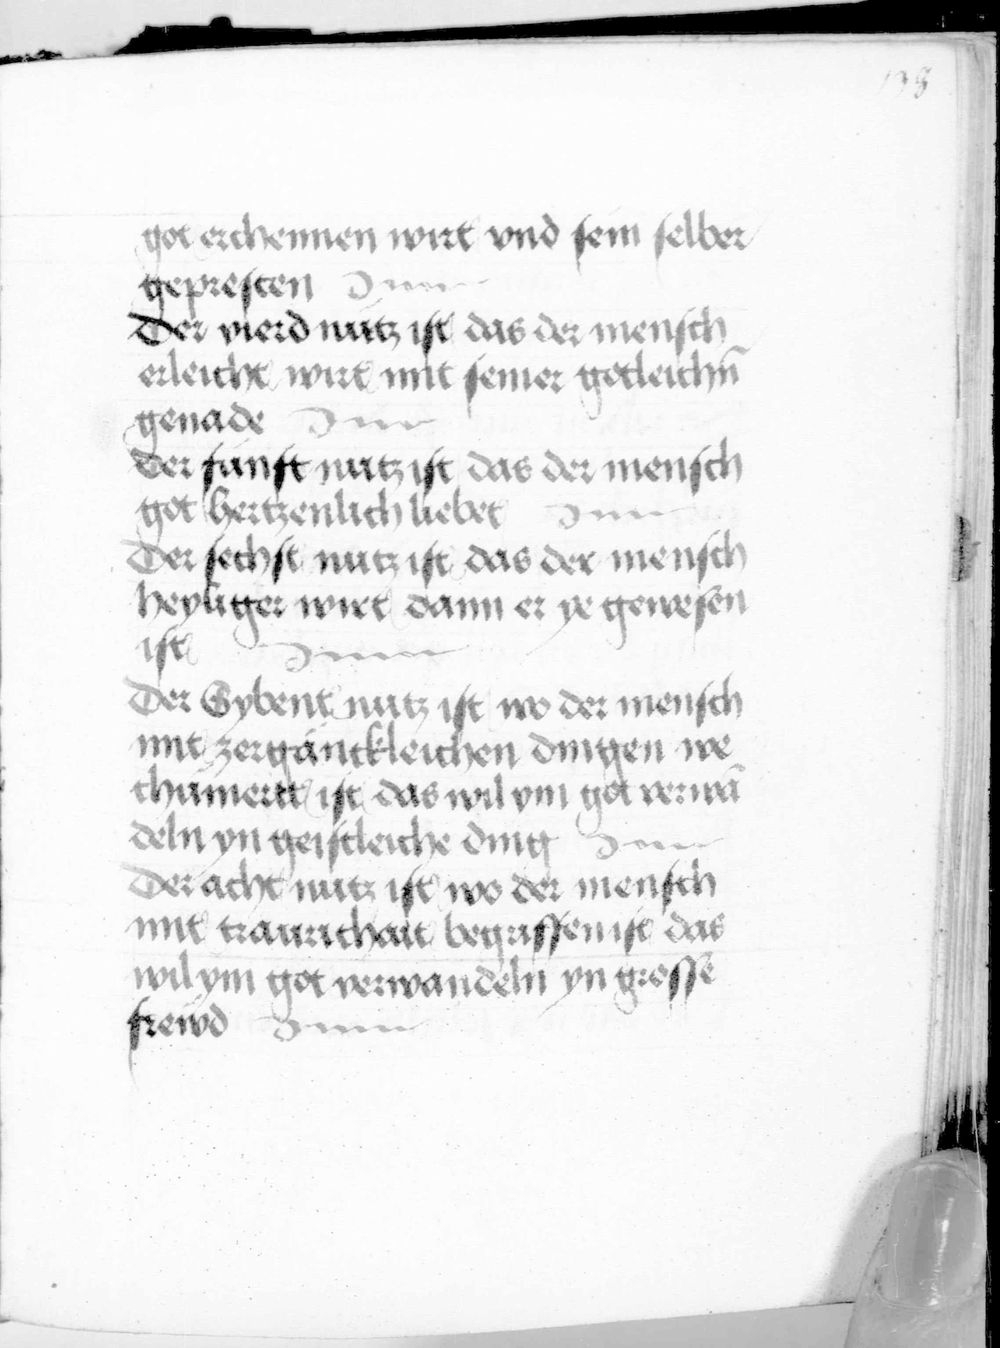 138
got erchennen wirt vnd sein selber
gepresten
Der vierd nutz ist das der mensch
erleicht wirt mit seiner gotleichn̄
genade
Der funft nutz ist das der mensch
got hertzenlich liebet
Der sechst nutz ist das der mensch
heyliger wirt dann er ye gewesen
ist
Der Sybent nutz ist wo der mensch
mit zergänckleichen dingen we
chümert ist das wil ym got verwā
deln yn geistleiche ding
Der acht nutz ist wo der mensch
mit traurichait begriffen ist das
wil ym got verwandeln yn grosse
frewd